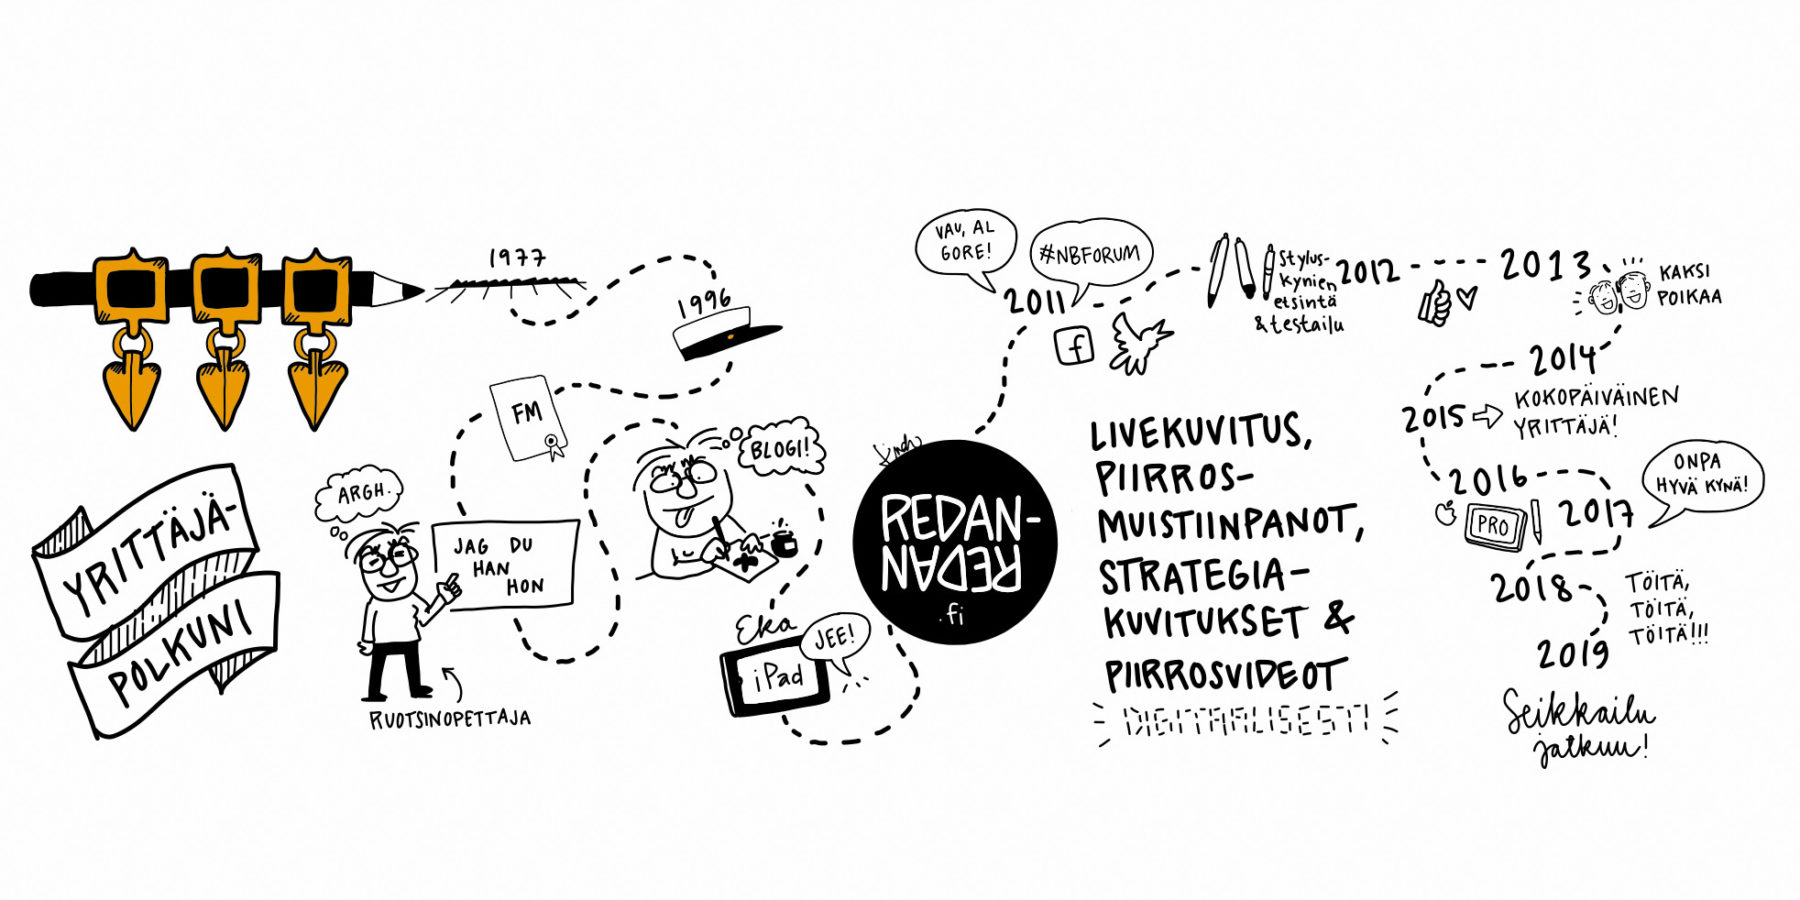 YRITTÄJÄ-
POLKUNI
1977
1996
FM
ARGH.
JAG DU
HAN
HON
RUOTSINOPETTAJA
BLOGI!
Eka
iPad
JEE!
REDAN-
REDAN
.fi
VAU, AL
GORE!
#NBFORUM
2011
f
Stylus-
kynien
etsintä
& testailu
2012
2013
KAKSI
POIKAA
2014
2015
KOKOPÄIVÄINEN
YRITTÄJÄ!
2016
PRO
2017
ONPA
HYVÄ KYNÄ!
2018
TÖITÄ,
TÖITÄ,
TÖITÄ!!!
2019
Seikkailu
jatkuu!
LIVEKUVITUS,
PIIRROS-
MUISTIINPANOT,
STRATEGIA-
KUVITUKSET &
PIIRROSVIDEOT
DIGITAALISESTI